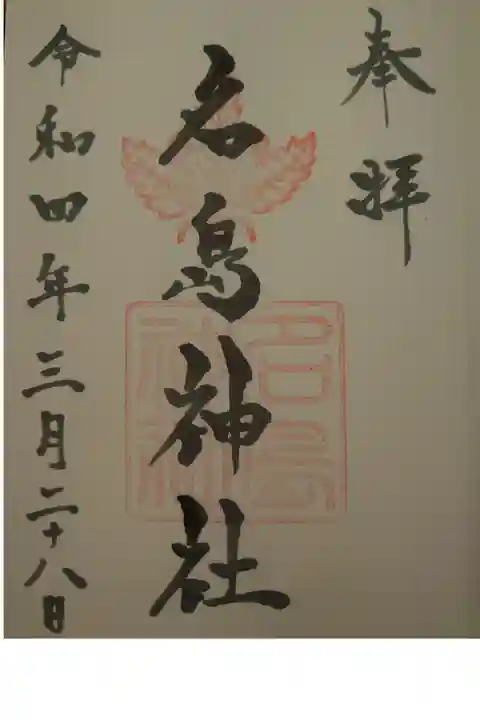 奉拝
名島神社
令和四年三月二十八日
名島
神社